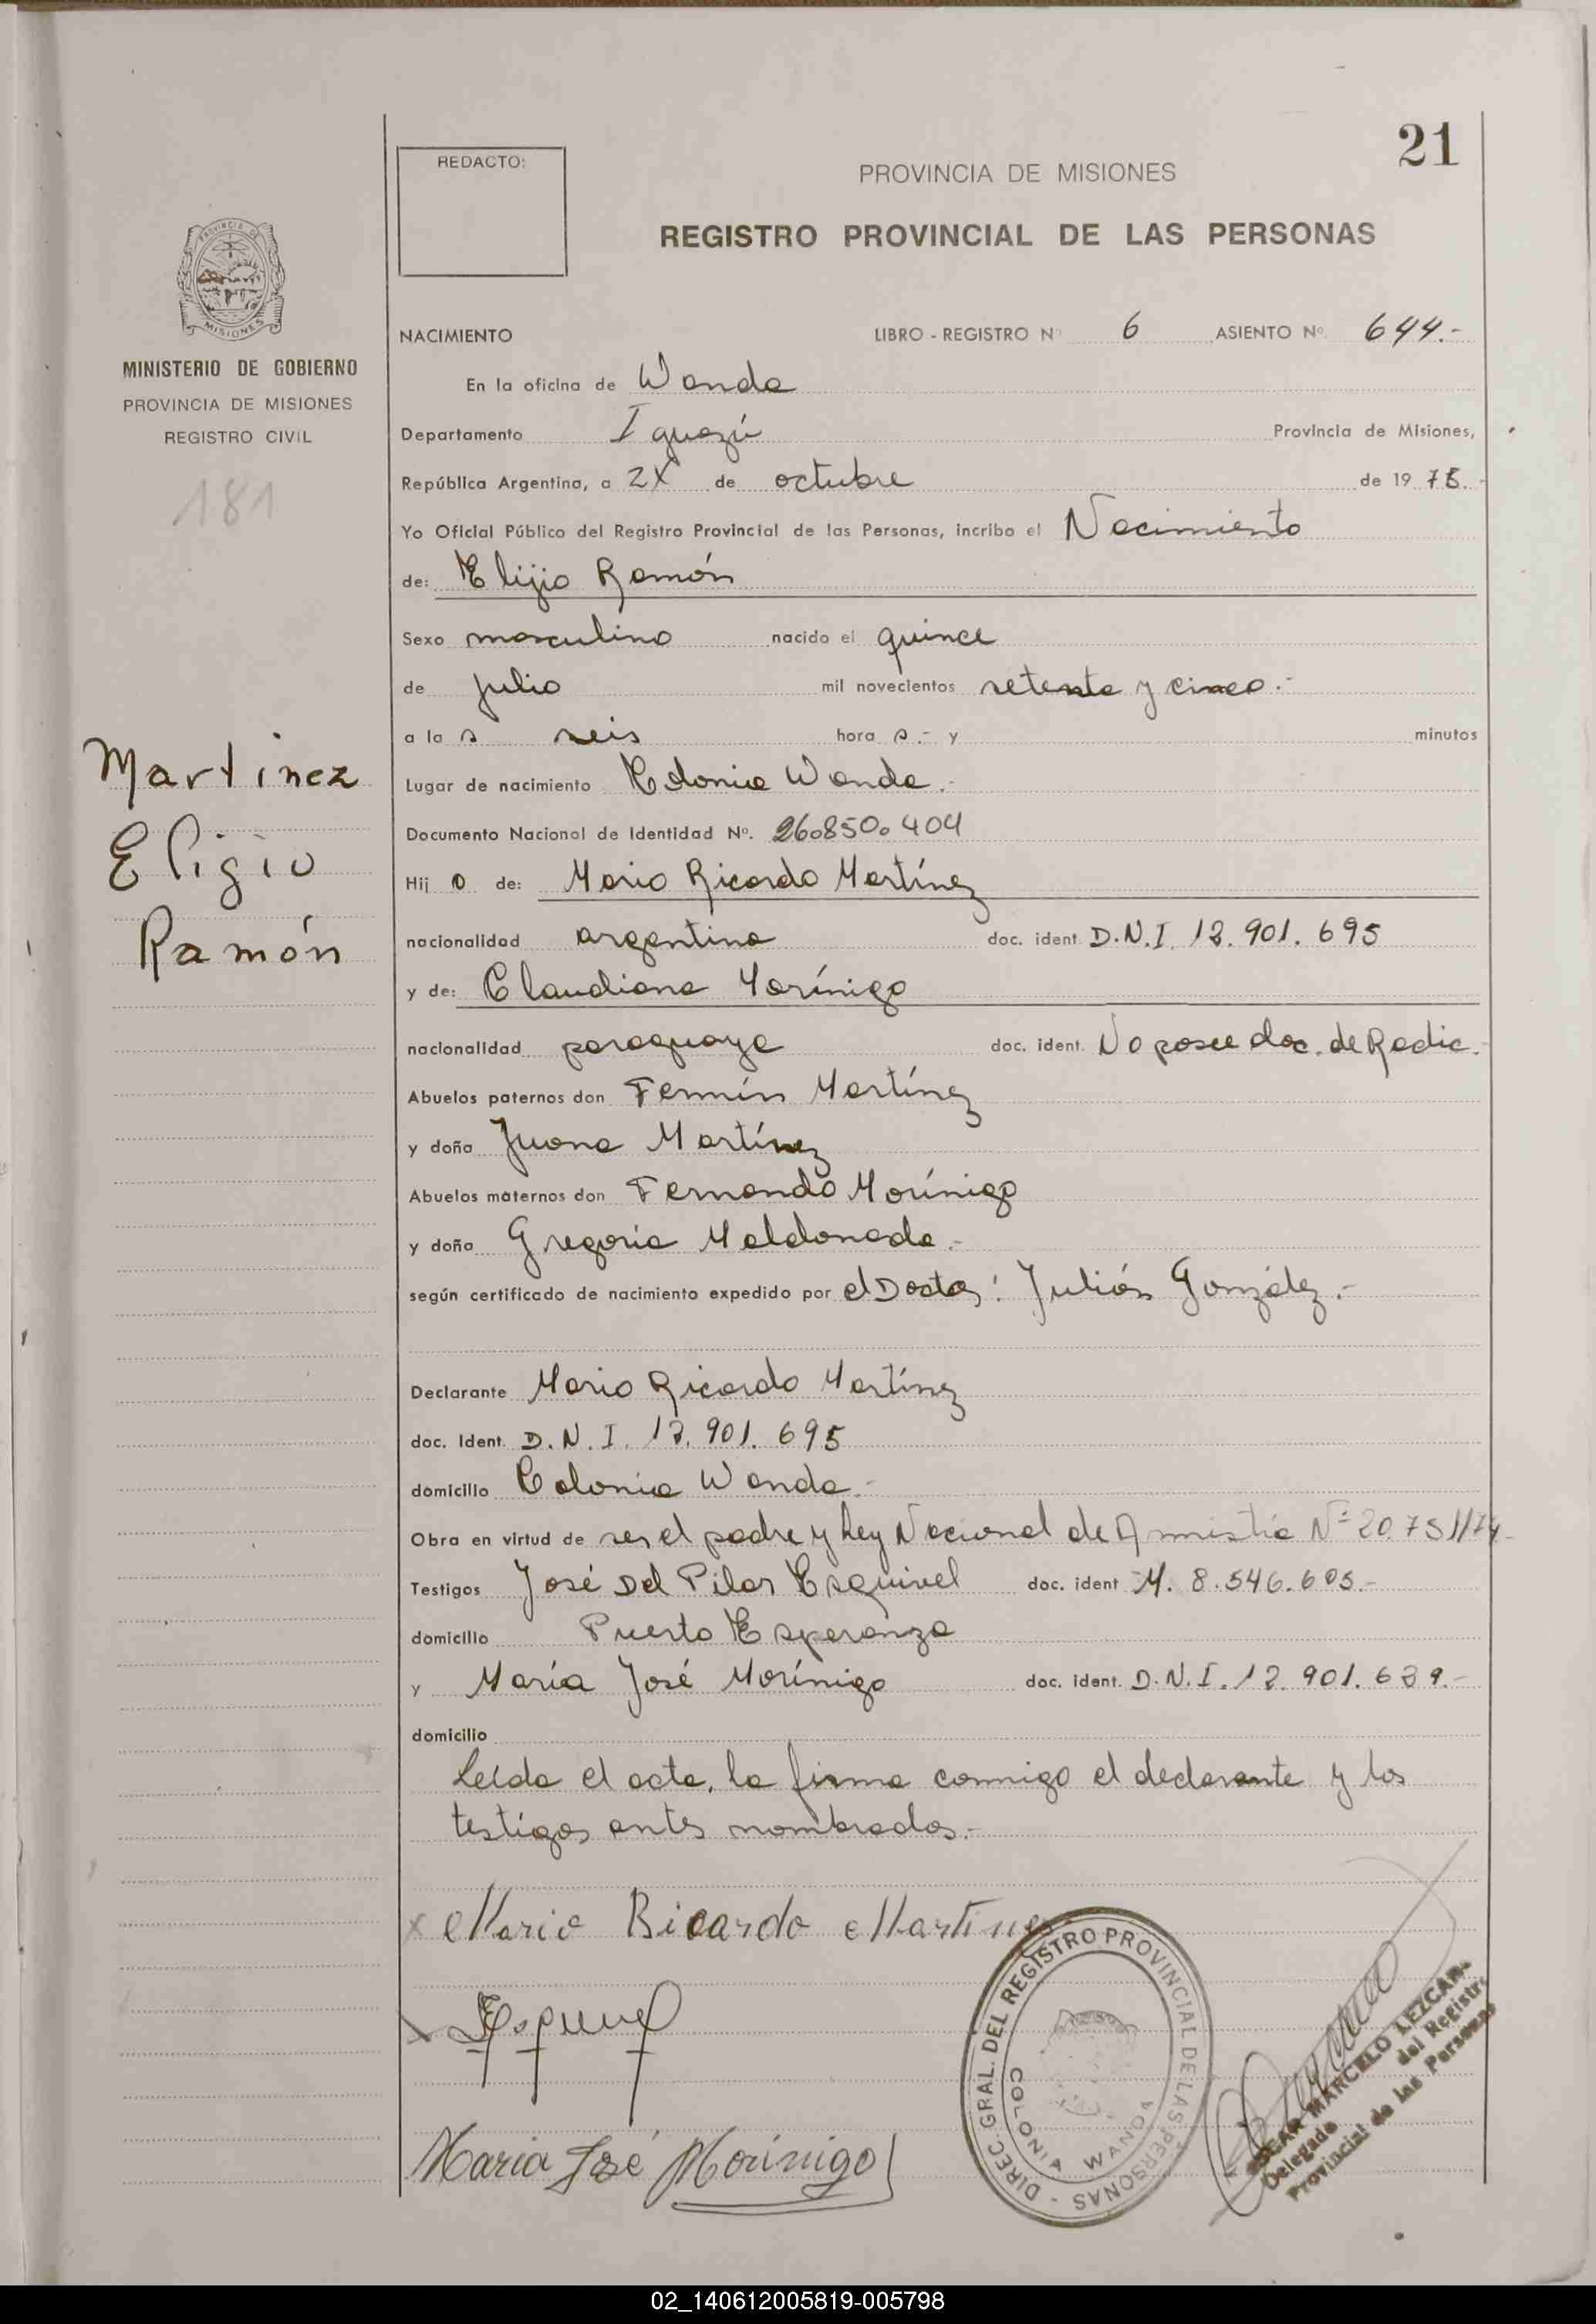 21
REDACTO:
PROVINCIA DE MISIONES
REGISTRO PROVINCIAL DE LAS PERSONAS
PROVINCIA DE
MISIONES
MINISTERIO DE GOBIERNO
PROVINCIA DE MISIONES
REGISTRO CIVIL
181
Martinez
Eligio
Ramón
NACIMIENTO LIBRO - REGISTRO Nº 6 ASIENTO Nº 644.-
En la oficina de Wanda
Departamento Iguazú Provincia de Misiones,
República Argentina, a de octubre de 19
Yo Oficial Público del Registro Provincial de las Personas, incribo el Nacimiento
de: Elijio Ramón
Sexo masculino nacido el quince
de julio mil novecientos setenta y cinco.-
a la s seis hora s.- y minutos
Lugar de nacimiento Colonia Wanda.-
Documento Nacional de Identidad Nº. 26.850.404
Hij o de: Mario Ricardo Martínez
nacionalidad argentina doc. ident. D.N.I. 12.901.695
y de: Claudiana Morínigo
nacionalidad paraguaya doc. ident. No posee doc. de Radic.-
Abuelos paternos don Fermín Martínez
y doña Juana Martínez
Abuelos maternos don Fernando Morínigo
y doña Gregoria Maldonada.-
según certificado de nacimiento expedido por el Doctor: Julián González.-
Declarante Mario Ricardo Martínez
doc. Ident. D.N.I. 12.901.695
domicilio Colonia Wanda.-
Obra en virtud de ser el padre y Ley Nacional de Amnistía Nº 20.751/74-
Testigos José Del Pilar Esquivel doc. ident M. 8.546.605.-
domicilio Puerto Esperanza
y María José Morínigo doc. ident. D.N.I. 12.901.639.-
domicilio
Leída el acta, la firma conmigo el declarante y los
testigos antes nombrados.-
x Mario Ricardo Martinez
x Esquivel
Maria José Morinigo
DIREC. GRAL. DEL REGISTRO PROVINCIAL DE LAS PERSONAS -
COLONIA WANDA
OSCAR MARCELO LEZCANO
Delegado del Registro
Provincial de las Personas
02_140612005819-005798